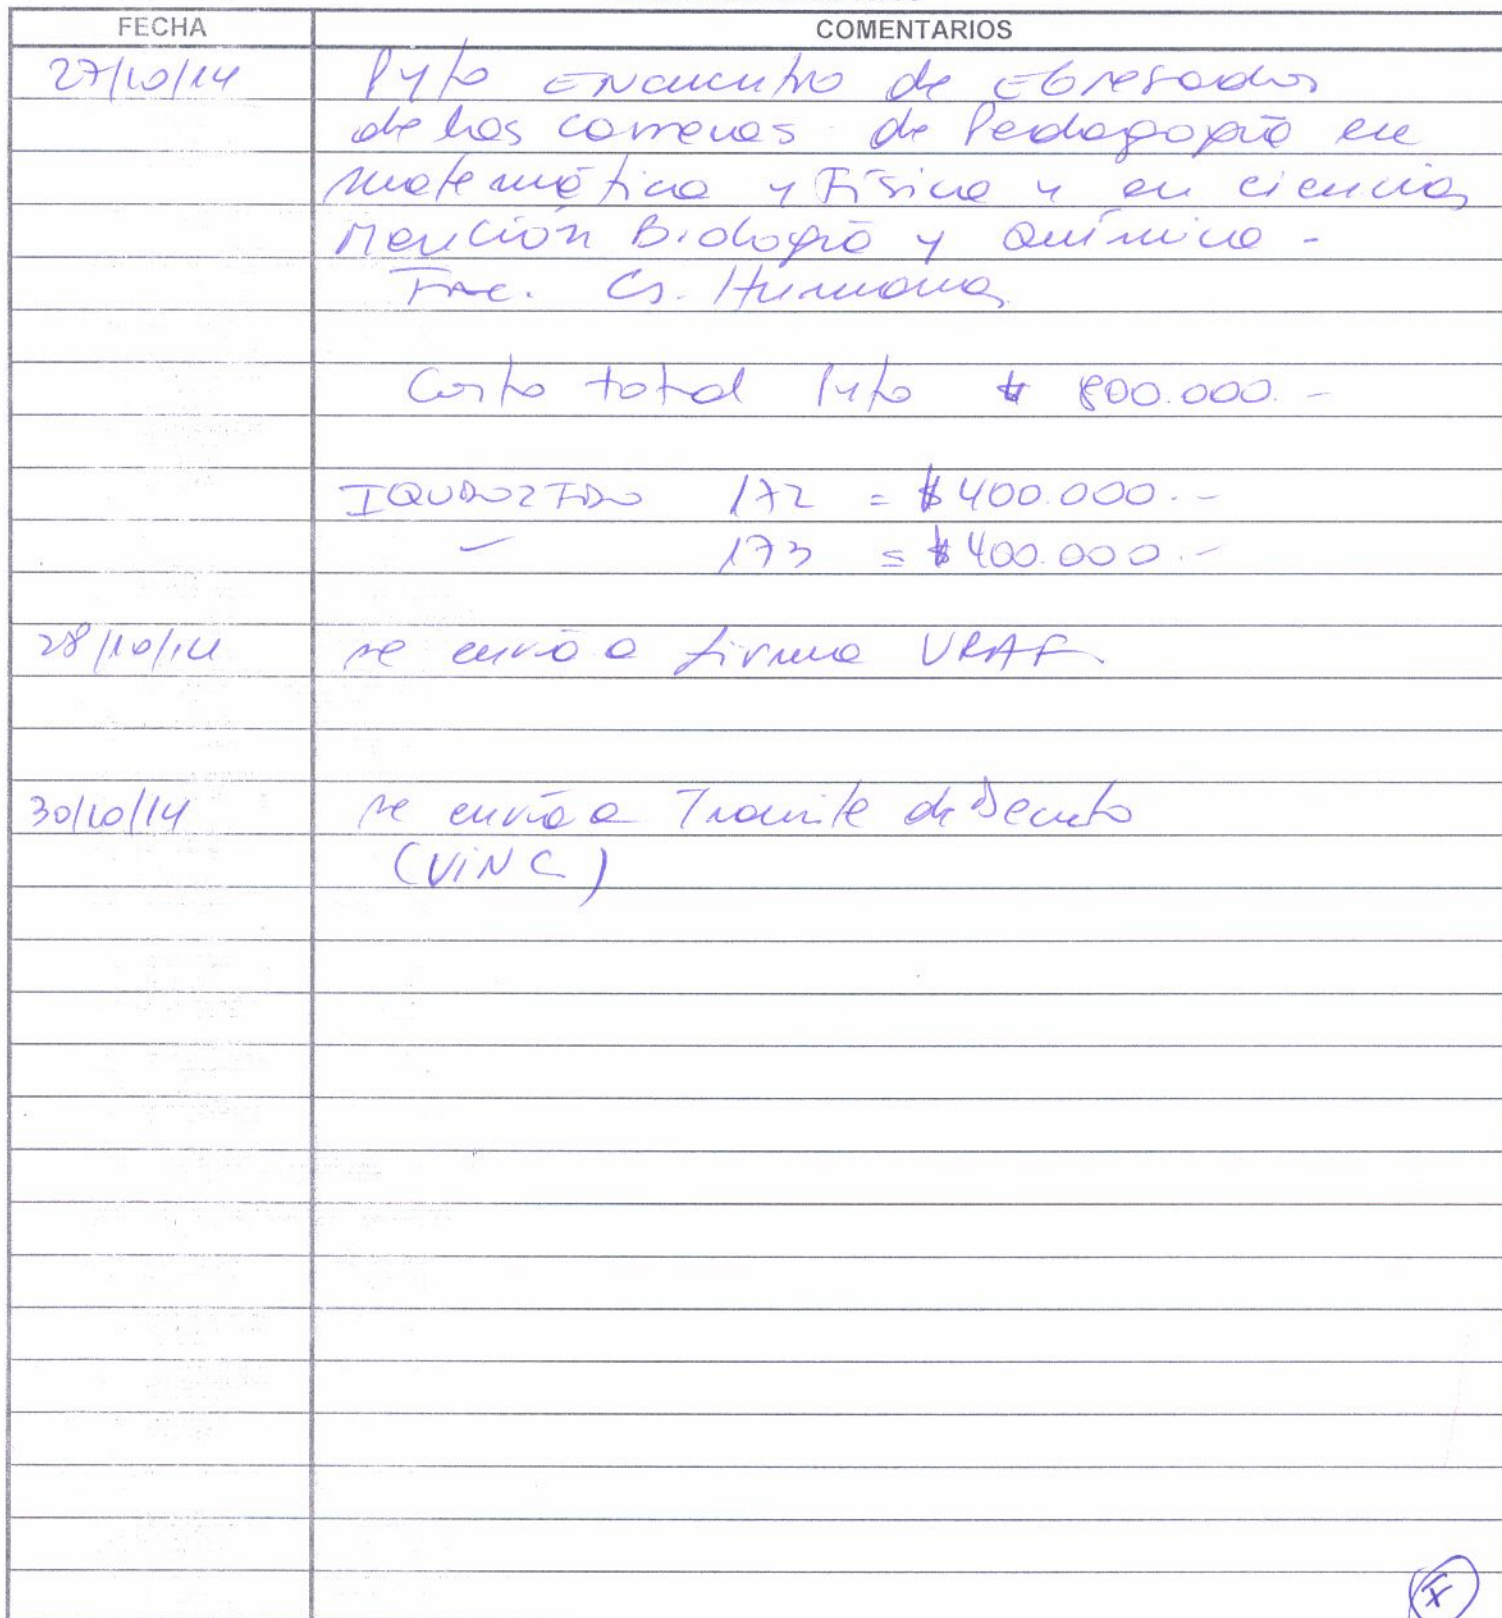 FECHA COMENTARIOS
27/10/14 Pyto Encuentro de Egresados
de las carreras de Pedagogía en
matemática y Física y en ciencias
Mención Biología y Química -
Fac. Cs. Humanas
Costo total Pyto $ 800.000.-
172 = $400.000.-
173 = $400.000.-
28/10/14 se envía a firma VRAF.
30/10/14 se envía a Tramite de Decreto
(VINC)